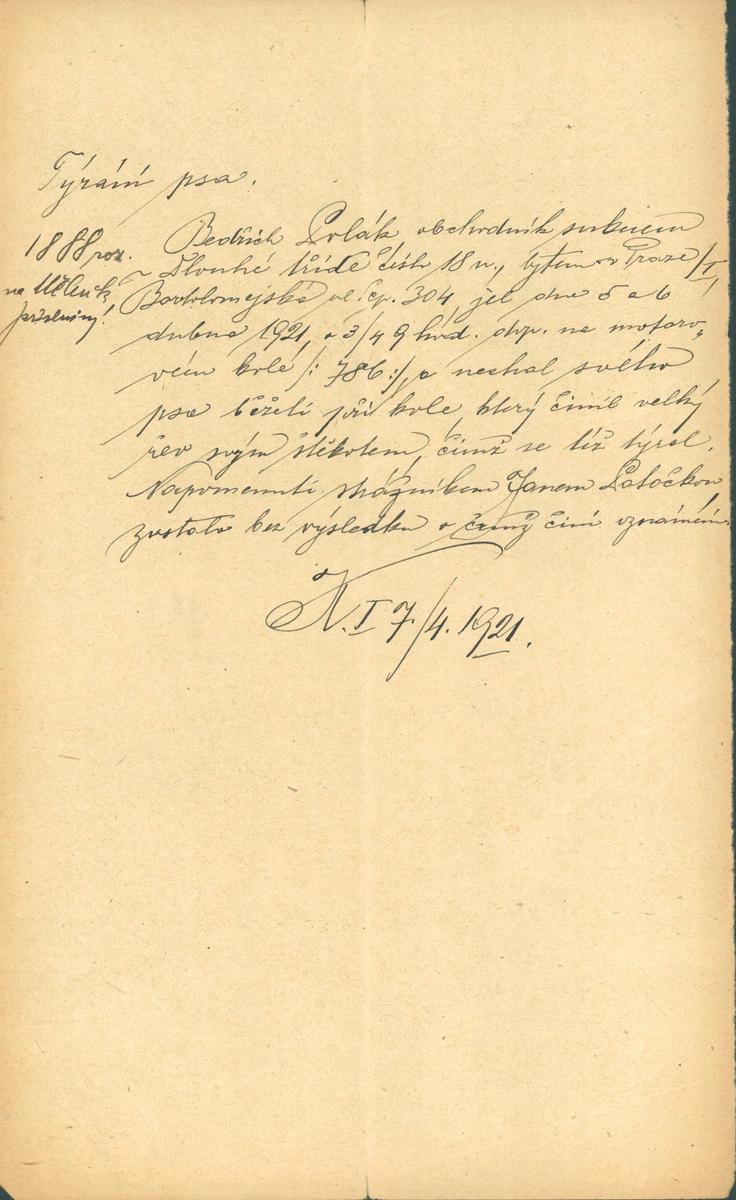 Týrání psa.
1888 roz.
na Mělník
přísluší!
Bedřich Polák obchodník suknem
v Dlouhé třídě číslo 18 n., bytem v Praze /I,
Bartolomejská ul. čp. 304, jel dne 5 a 6
dubna 1921, o 3/4 9 hod. dop. na motoro„
vém kole /: 786:/, a nechal svého
psa běžeti při kole, který činil velký
řev svým štěkotem, čímž se též týral.
Napomenutí strážníkem Janem Patočkou
zůstalo bez výsledku o čemž činí oznámení.
K.I 7./4. 1921.